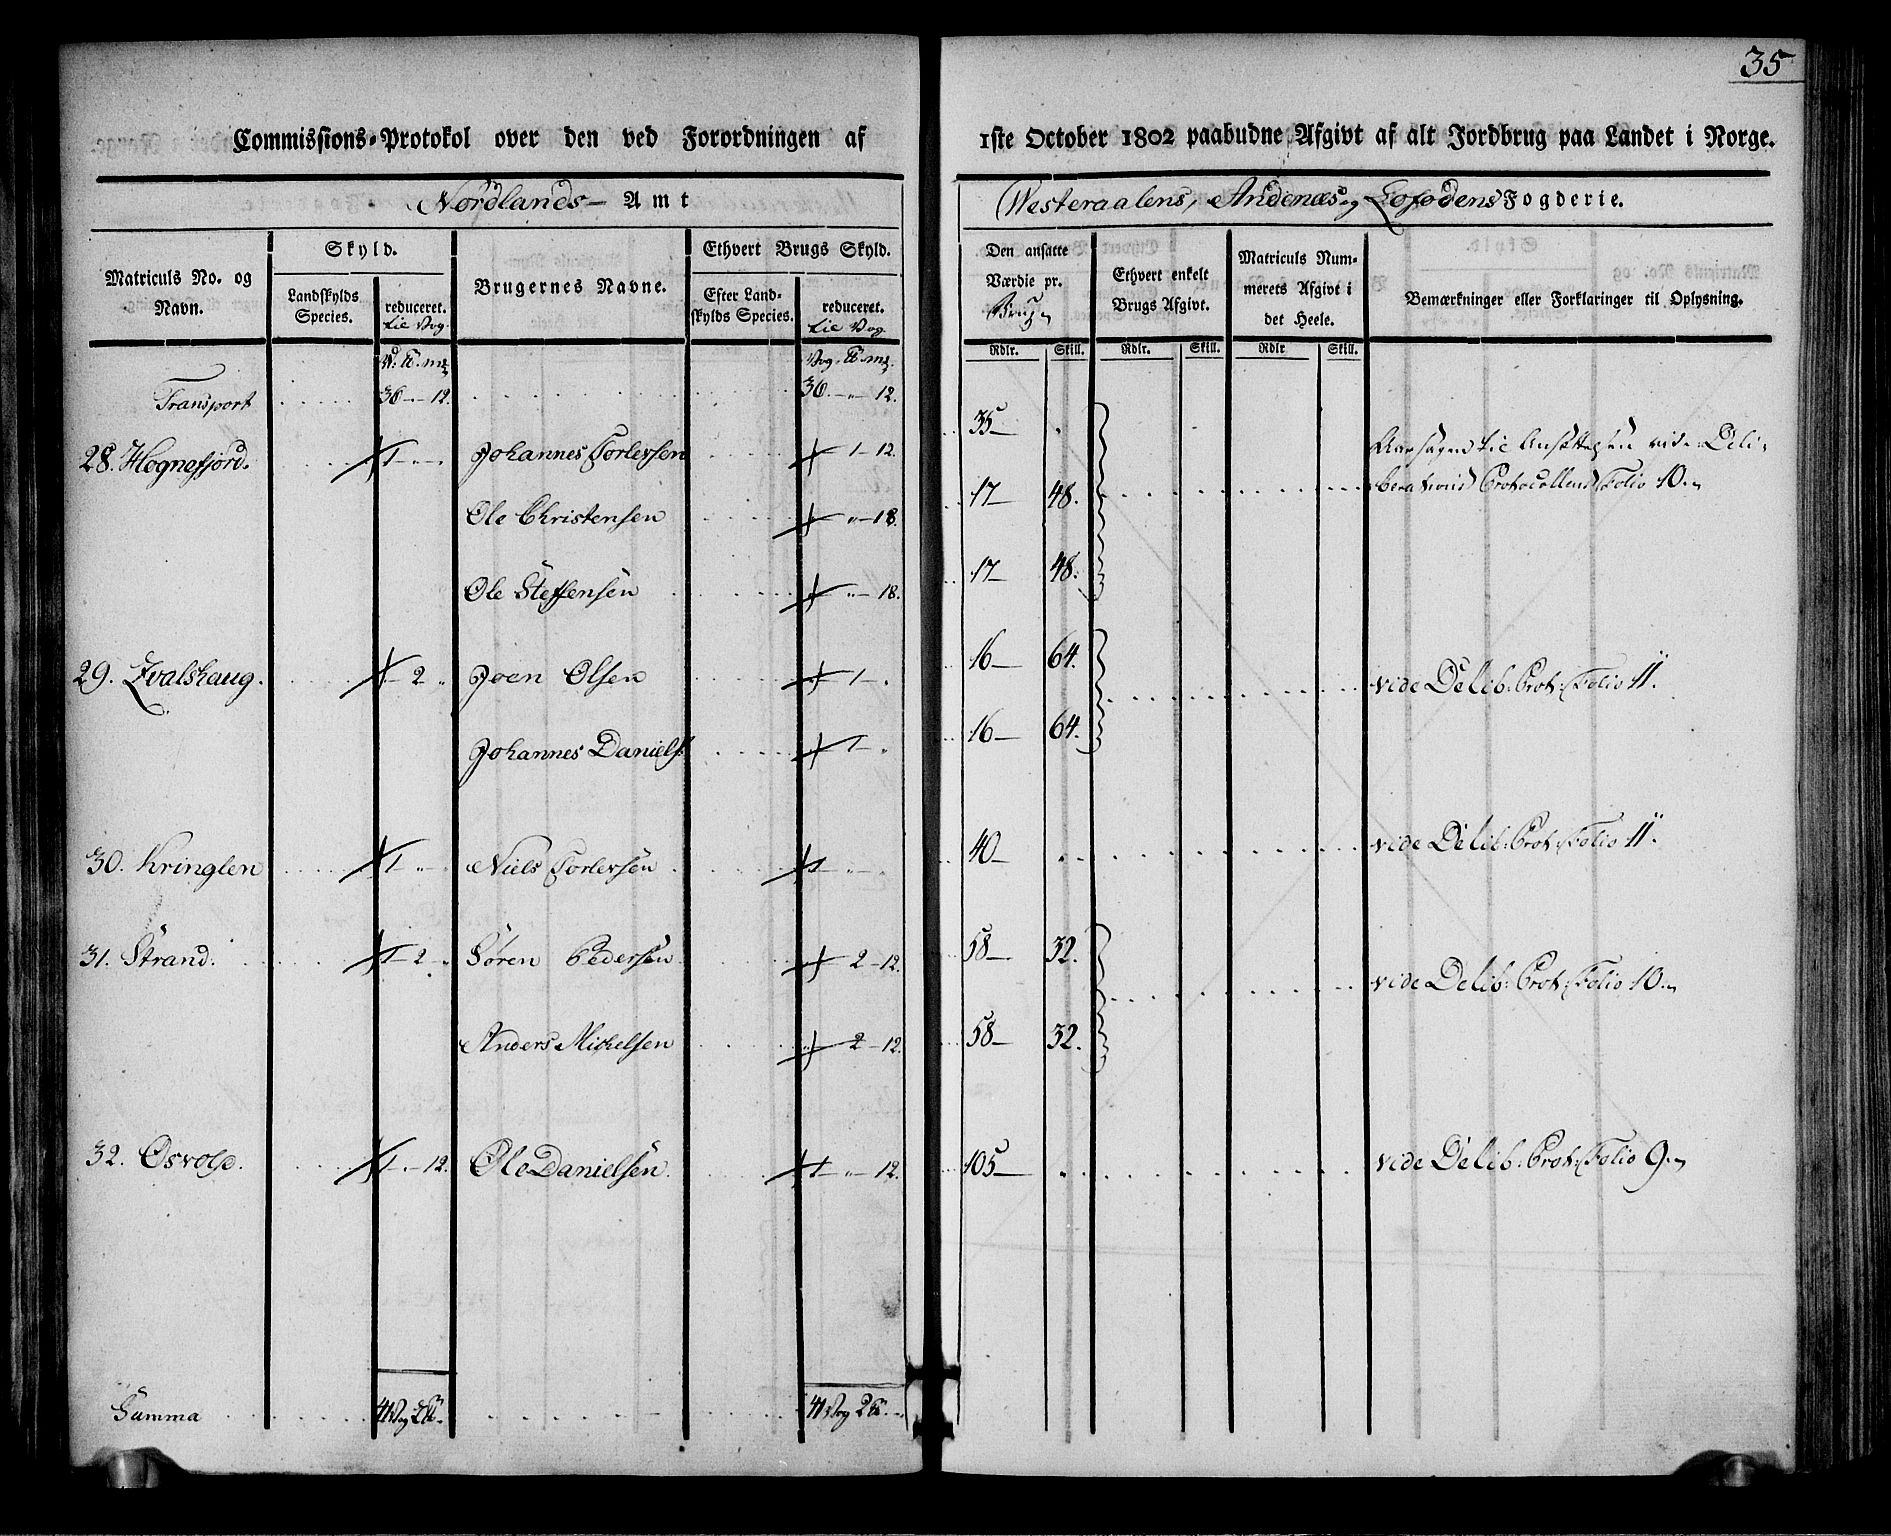 35
Commissions-Protokol over den ved Forordningen af 1ste October 1802 paabudne Afgivt af alt Jordbrug paa Landet i Norge.
Nordlands Amt
Westeraalens, Andenæs og Lofodens Fogderie.
Matriculs No. og Navn.
Skyld.
Landskylds Species.
reduceret. til Vog.
Brugernes Navne.
Ethvert Brugs Skyld.
Efter Landskylds Species.
reduceret. til Vog.
Den ansatte Værdie pr. Brug
Ethvert enkelt Brugs Afgivt.
Matriculs Nummerets Afgivt i det Heele.
Bemærkninger eller Forklaringer til Oplysning.
Rdlr. Skill. Rdlr. Skill. Rdlr Skill.
Transport 36 - " - 12. 36. - " - 12.
28. Hognefjord. 1 - " - " Johannes Torlevsen 1 - 12. 35 - .
Aarsagen til Ansættelsen vide Deliberations Protocollens Folio 10.
Ole Christensen " - 18. 17 - 48.
Ole Steffensen " - 18. 17 - 48.
29. Kvalshaug. 2 " Joen Olsen 1 - " 16 - 64. vide Delib: Prot: Folio 11.
Johannes Daniels. 1 - " 16 - 64.
30. Kringlen 1 - " - " Niels Torlevsen 1 - " - " 40 - . vide Delib: Prot: Folio 11.
31. Strand. 1 - 2 - " Søren Pedersen 2 - 12. 58 - 32. vide Delib: Prot: Folio 10.
Anders Michelsen 2 - 12. 58 - 32.
32. Osvold. 1 - " - 12. Ole Danielsen 1 - " - 12. 105 - . vide Delib: Prot: Folio 9.
Summa 41 Vog 2 41 Vog 2